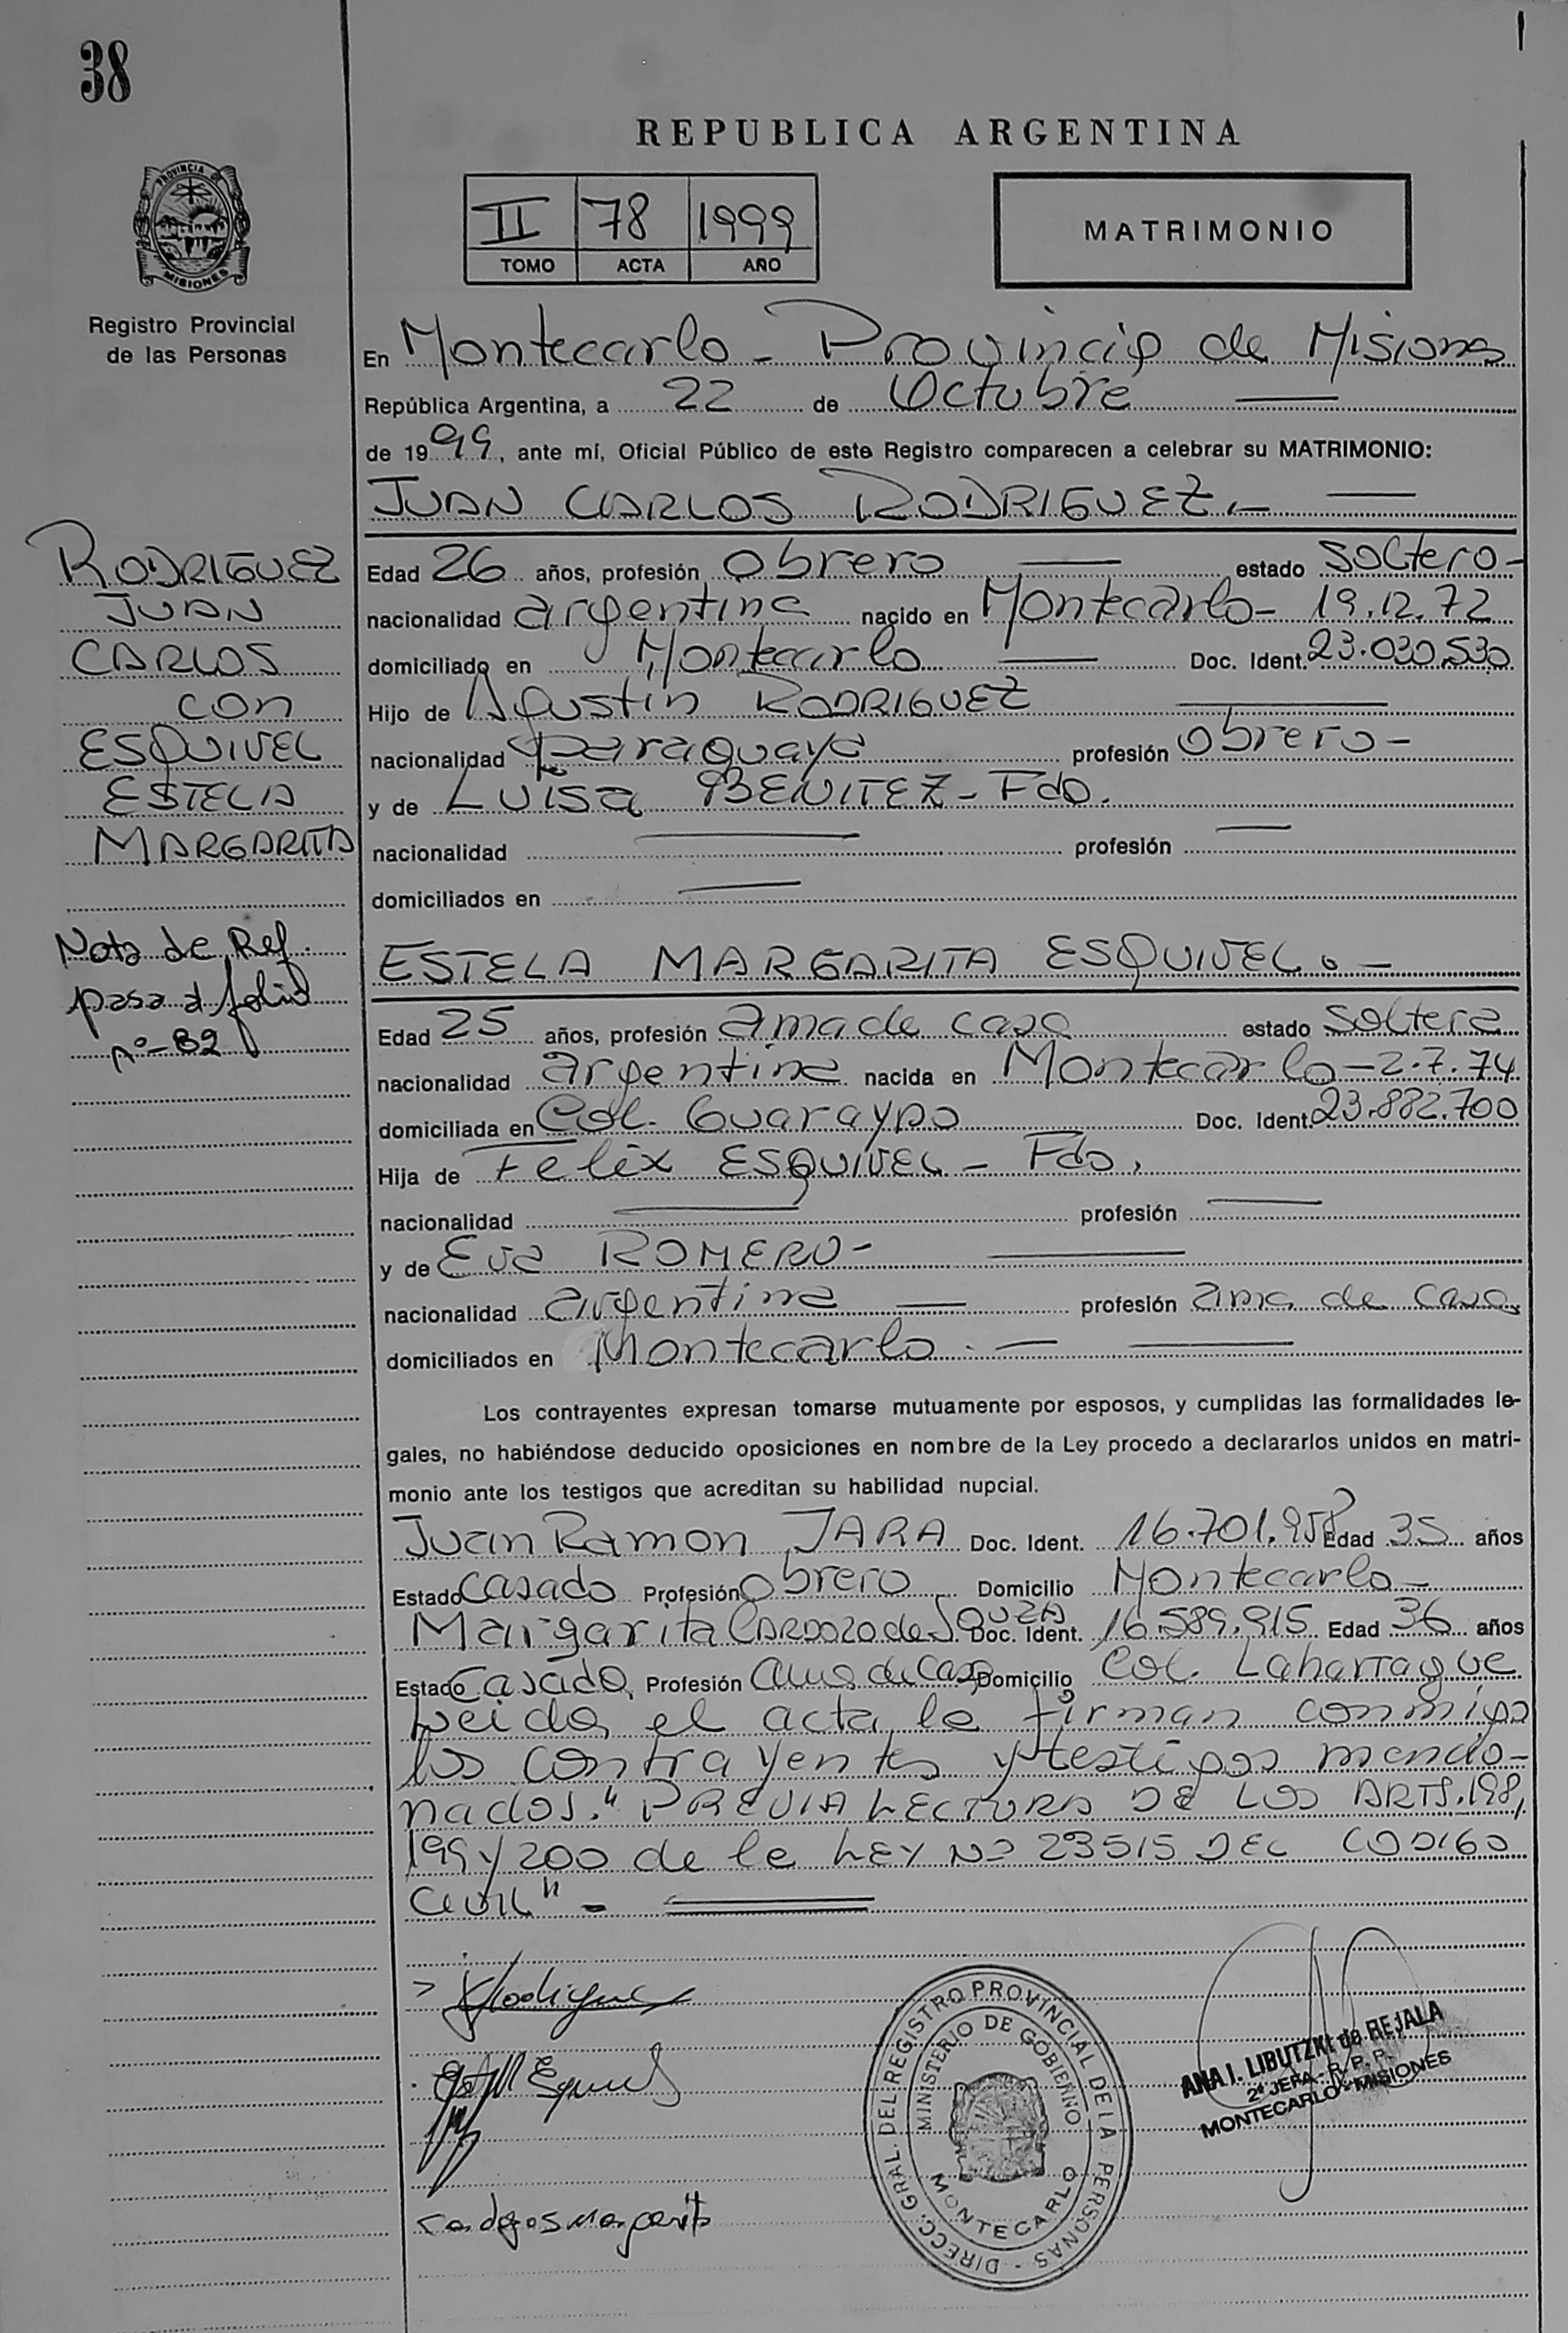 38
REPUBLICA ARGENTINA
PROVINCIA DE
MISIONES
Registro Provincial
de las Personas
II 78 1999
TOMO ACTA AÑO
MATRIMONIO
En Montecarlo - Provincia de Misiones
República Argentina, a 22 de Octubre
de 1999, ante mí, Oficial Público de este Registro comparecen a celebrar su MATRIMONIO:
JUAN CARLOS RODRIGUEZ.-
RODRIGUEZ
JUAN
CARLOS
con
ESQUIVEL
ESTELA
MARGARITA
Nota de Ref.
pasa al folio
nº- 82
Edad 26 años, profesión Obrero estado Soltero-
nacionalidad argentina nacido en Montecarlo- 19.12.72
domiciliado en Montecarlo Doc. Ident. 23.030.530
Hijo de Agustin RODRIGUEZ
nacionalidad paraguaya profesión Obrero-
y de Luisa BENITEZ - Fdo.
nacionalidad profesión
domiciliados en
ESTELA MARGARITA ESQUIVEL.-
Edad 25 años, profesión ama de casa estado Soltera
nacionalidad argentina nacida en Montecarlo - 2.7.74
domiciliada en Col. Guaraypo Doc. Ident. 23.882.700
Hija de Felix ESQUIVEL - Fdo.
nacionalidad profesión
y de Eva ROMERO-
nacionalidad argentina profesión ama de casa
domiciliados en Montecarlo.-
Los contrayentes expresan tomarse mutuamente por esposos, y cumplidas las formalidades le-
gales, no habiéndose deducido oposiciones en nombre de la Ley procedo a declararlos unidos en matri-
monio ante los testigos que acreditan su habilidad nupcial.
Juan Ramon JARA Doc. Ident. Edad 35 años
Estado Casado Profesión Obrero Domicilio Montecarlo-
Margarita CARDOZO de SOUZA Doc. Ident. 16.589.915 Edad 36 años
Estado Casado, Profesión Ama de Casa Domicilio Col. Laharrague
Leida el acta, la firman conmigo
los contrayentes y testigos mencio-
nados. "PREVIA LECTURA DE LOS ARTS. 198,
199 y 200 de la LEY Nº 23515 DEL CODIGO
CIVIL" -
DIRECC. GRAL. DEL REGISTRO PROVINCIAL DE LA PERSONAS
MINISTERIO DE GOBIERNO
MONTECARLO
ANA I. LIBUTZKI de REJALA
2ª JEFA - R. P. P.
MONTECARLO - MISIONES